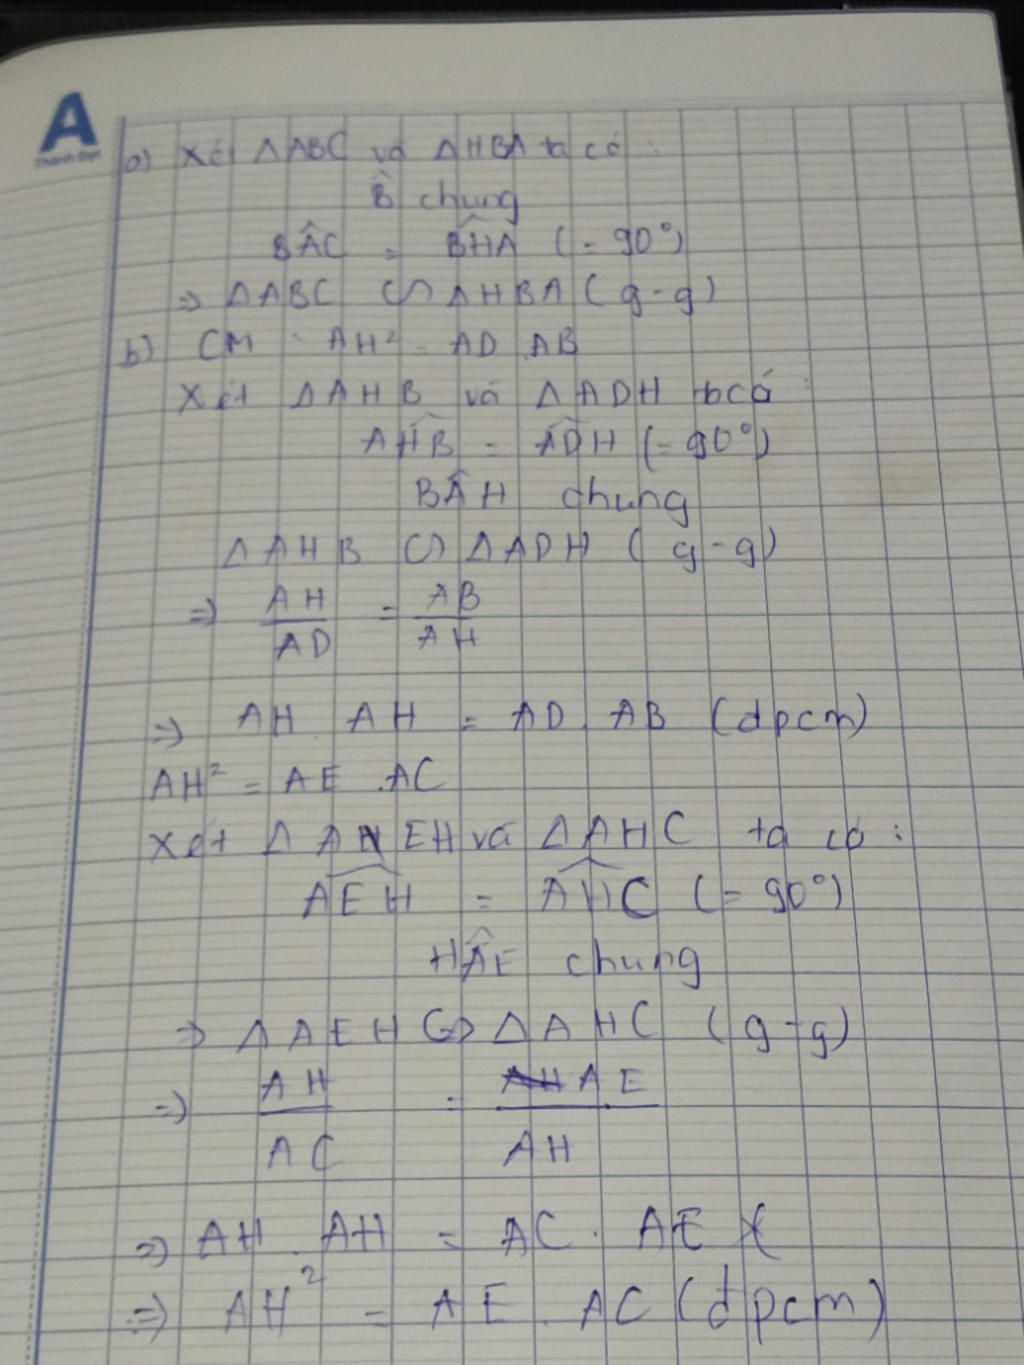 A
Thành Đạt
a) Xét ΔABC và ΔHBA ta có:
B̂ chung
BÂC = BĤA (= 90°)
⇒ ΔABC ∽ ΔHBA (g-g)
b) CM: AH² = AD.AB
Xét ΔAHB và ΔADH ta có:
AĤB = AD̂H (= 90°)
BÂH chung
ΔAHB ∽ ΔADH (g-g)
⇒ AH/AD = AB/AH
⇒ AH.AH = AD.AB (đpcm)
AH² = AE.AC
Xét ΔAEH và ΔAHC ta có:
AÊH = AĤC (= 90°)
HÂE chung
⇒ ΔAEH ∽ ΔAHC (g-g)
⇒ AH/AC = AE/AH
⇒ AH.AH = AC.AE
⇒ AH² = AE.AC (đpcm)